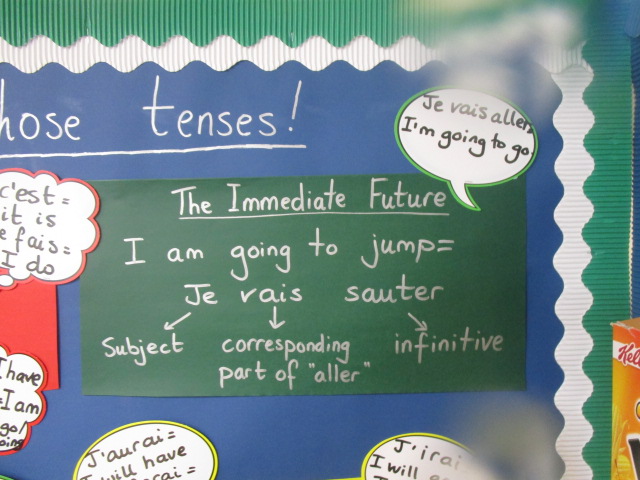 hose tenses!
Je vais aller
I'm going to go
c'est =
it is
e fais =
I do
The Immediate Future
I am going to jump =
Je vais sauter
Subject
corresponding
part of "aller"
infinitive
I have
= I am
go/
going
J'aurai =
I will have
J'irai
I will
Kell